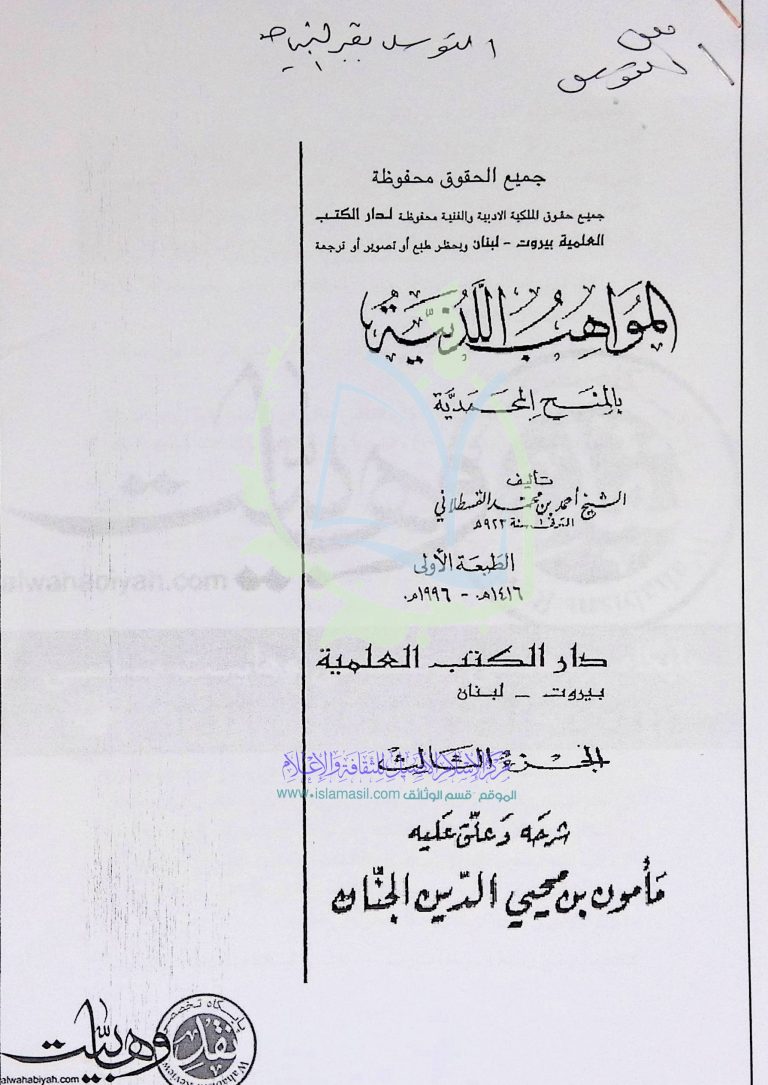 التوسل بقبر النبي ص
التوسل
جميع الحقوق محفوظة
جميع حقوق الملكية الادبية والفنية محفوظة لدار الكتب
العلمية بيروت - لبنان ويحظر طبع أو تصوير أو ترجمة
المَوَاهِبُ اللَّدُنِيَّةُ
بِالمِنَحِ المحَمَّدِيَّة
تأليف
الشيخ أحمد بن محمد القسطلاني
المتوفى سنة ٩٢٣هـ
الطبعَة الأولى
١٤١٦هـ - ١٩٩٦م
دار الكتب العلمية
بيروت - لبنان
الجزء الثالث
مركز الإسلام الأصيل للثقافة والإعلام
الموقع قسم الوثائق www.islamasil.com
شرحَه وَعلّق عَليه
مَأمون بن محيي الدّين الجنّان
alwahabiyah.com
پایگاه تخصصی
نقد وهابیت
Wahabism Review
alwahabiyah.com